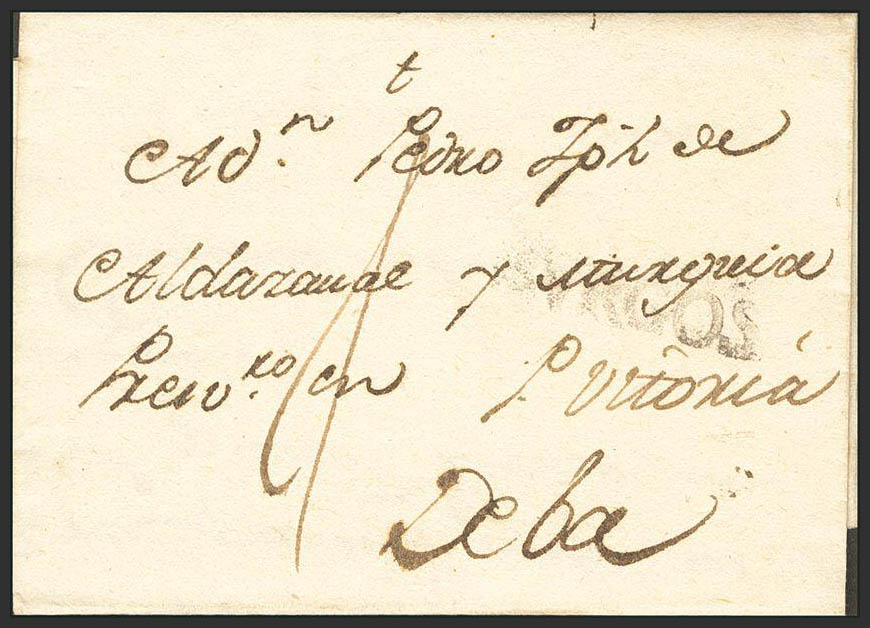 t
A dn. Pedro Jph de
Aldazaual y Murguia
Presvro. en P. Vitoria
Deba